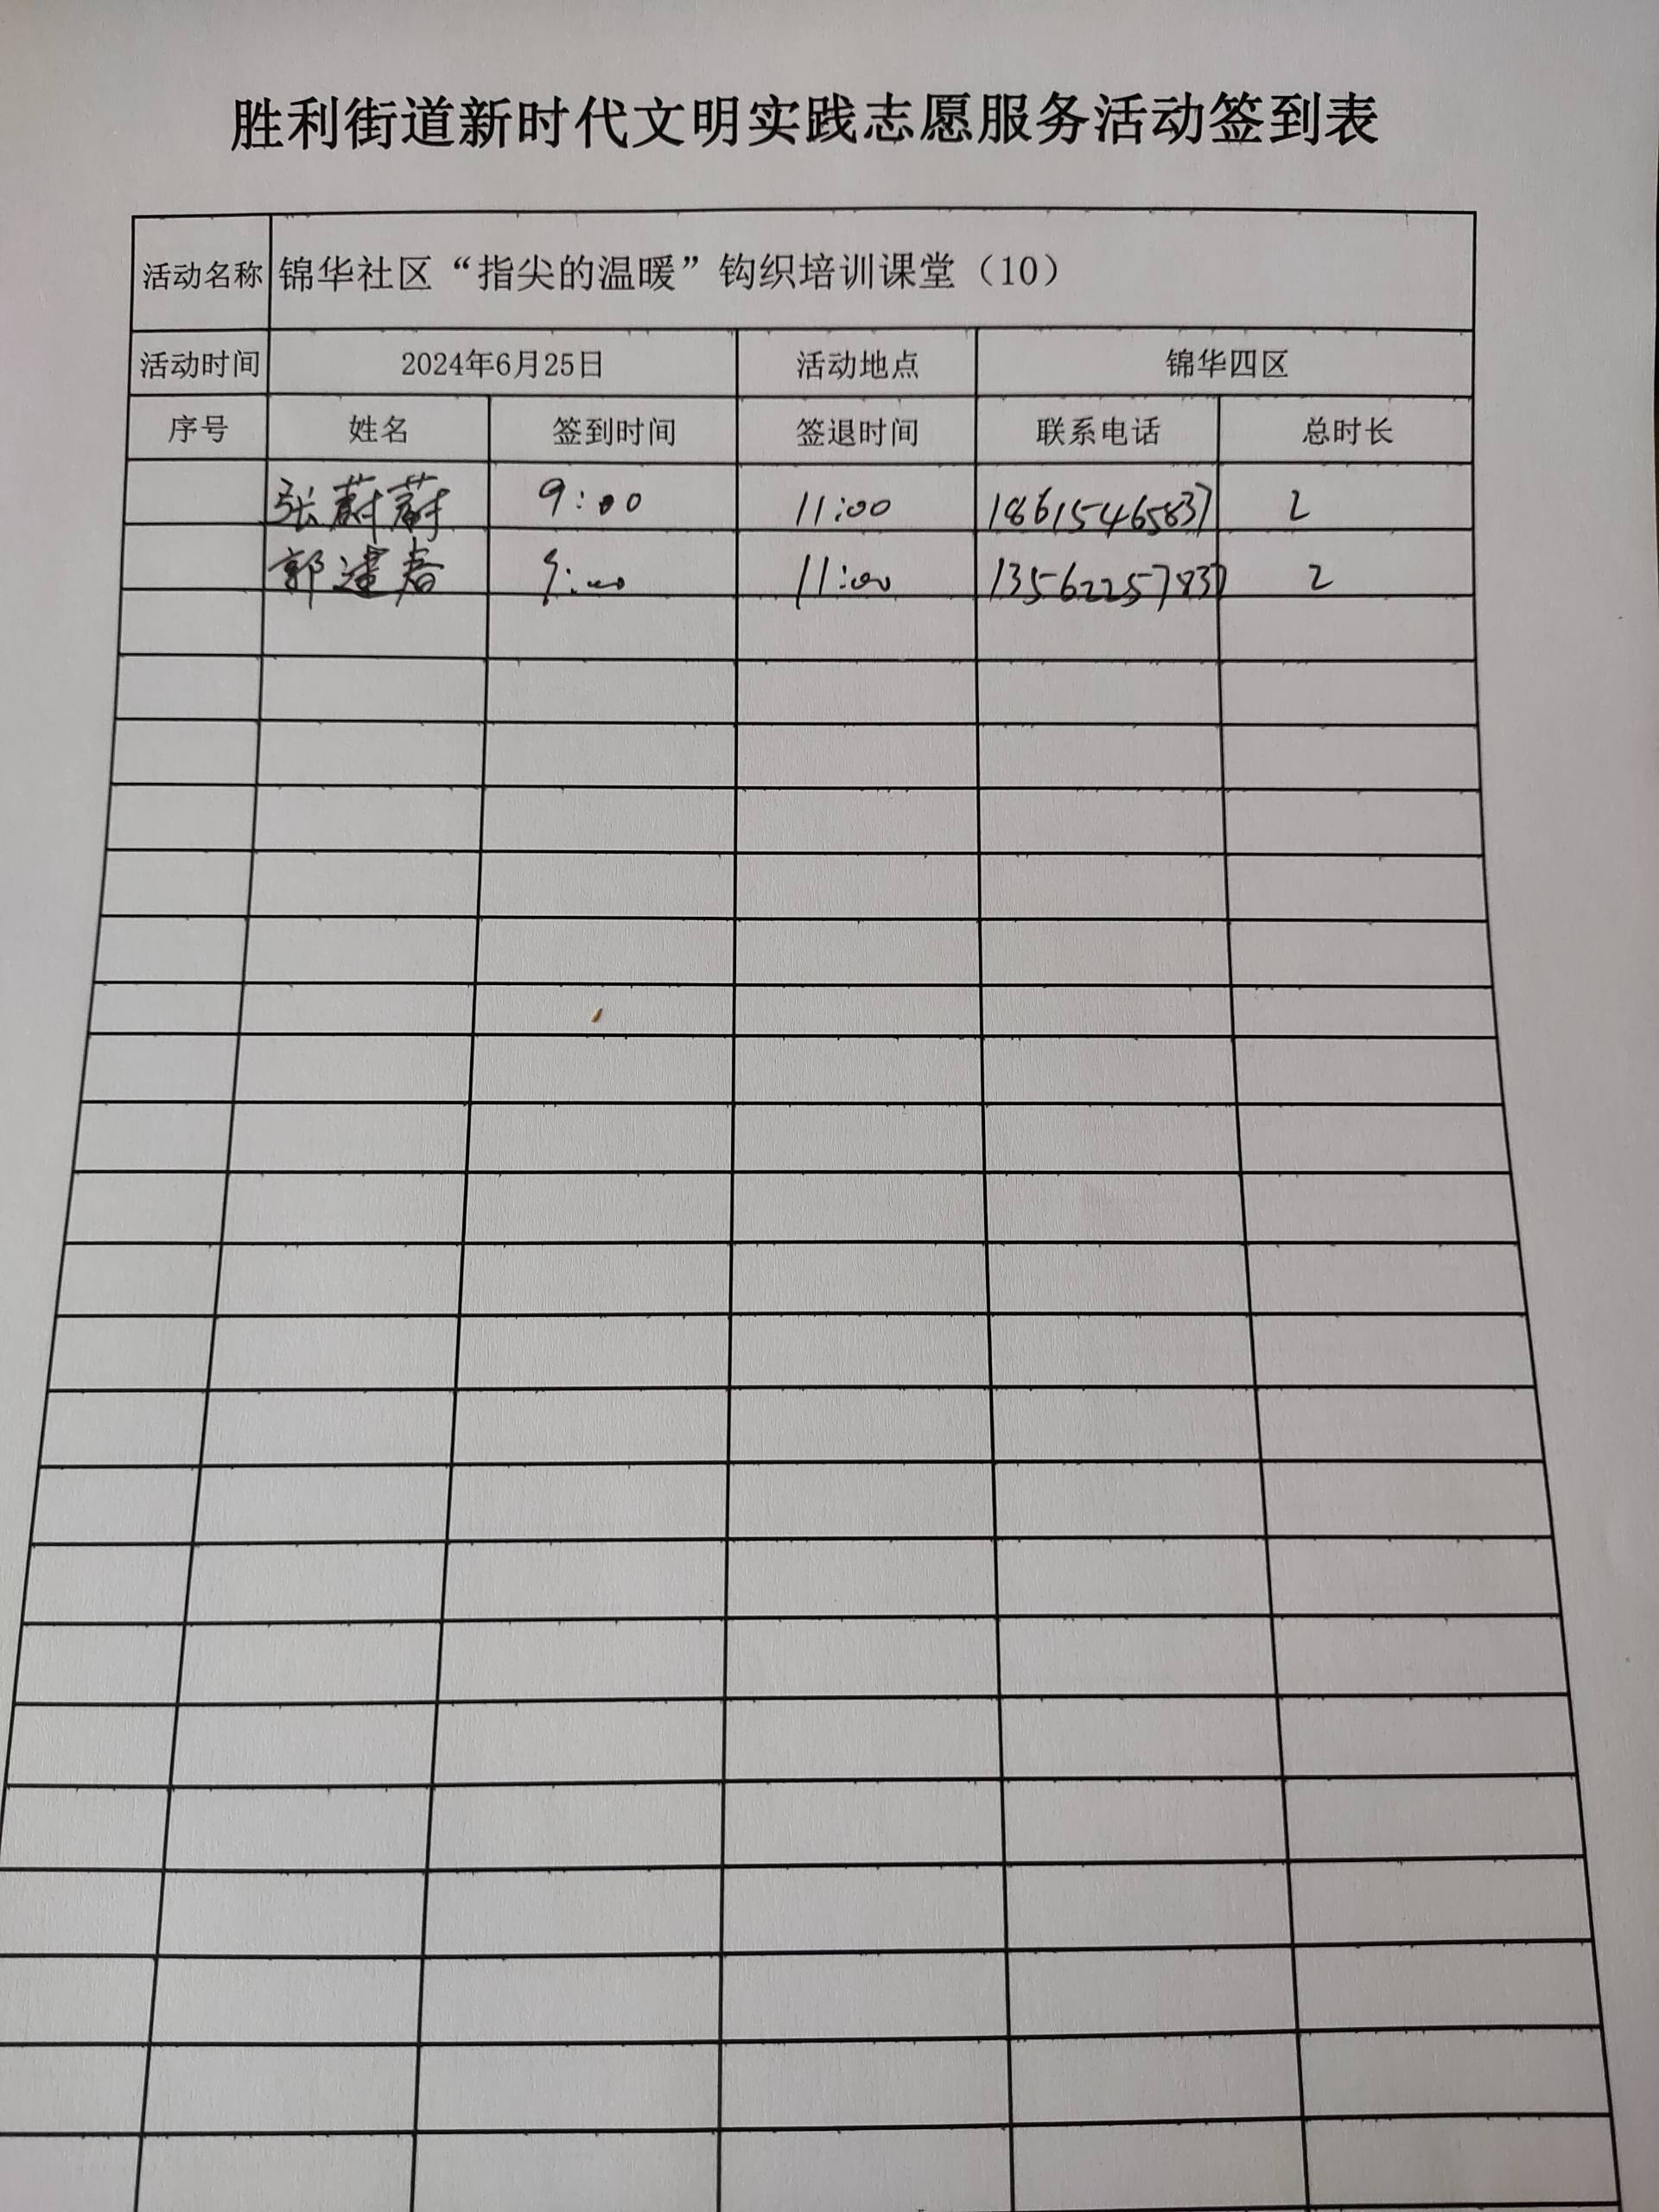 胜利街道新时代文明实践志愿服务活动签到表
活动名称 锦华社区“指尖的温暖”钩织培训课堂（10）
活动时间 2024年6月25日 活动地点 锦华四区
序号 姓名 签到时间 签退时间 联系电话 总时长
张蔚蔚 9:00 11:00 18615465837 2
郭建春 9:00 11:00 13562257837 2